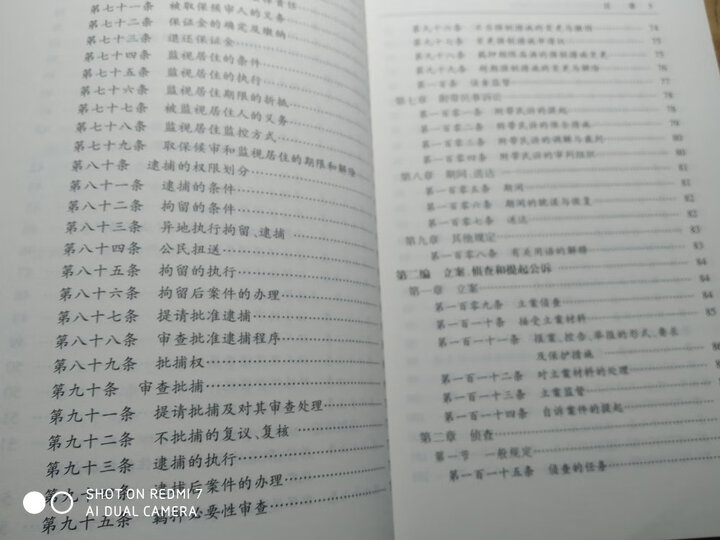 第七十一条 被取保候审人的义务
第七十二条 保证金的确定及缴纳
第七十三条 退还保证金
第七十四条 监视居住的条件
第七十五条 监视居住的执行
第七十六条 监视居住期限的折抵
第七十七条 被监视居住人的义务
第七十八条 监视居住监控方式
第七十九条 取保候审和监视居住的期限和解除
第八十条 逮捕的权限划分
第八十一条 逮捕的条件
第八十二条 拘留的条件
第八十三条 异地执行拘留、逮捕
第八十四条 公民扭送
第八十五条 拘留的执行
第八十六条 拘留后案件的办理
第八十七条 提请批准逮捕
第八十八条 审查批准逮捕程序
第八十九条 批捕权
第九十条 审查批捕
第九十一条 提请批捕及对其审查处理
第九十二条 不批捕的复议、复核
第九十三条 逮捕的执行
逮捕后案件的办理
第九十五条 羁押必要性审查
SHOT ON REDMI 7
AI DUAL CAMERA
目录 5
第九十六条 74
第九十七条 75
第九十八条 76
第九十九条
第一百条 侦查监督 77
第七章 附带民事诉讼 78
第一百零一条 附带民诉的提起 78
第一百零二条 附带民诉的保全措施 79
第一百零三条 附带民诉的调解与裁判 80
第一百零四条 附带民诉的审判组织 80
第八章 期间、送达 81
第一百零五条 期间 81
第一百零六条 期间的耽误与恢复 82
第一百零七条 送达 82
第九章 其他规定 83
第一百零八条 有关用语的解释 83
第二编 立案、侦查和提起公诉 84
第一章 立案 84
第一百零九条 立案侦查 84
第一百一十条 接受立案材料 85
第一百一十一条 报案、控告、举报的形式、要求
及保护措施 86
第一百一十二条 对立案材料的处理
第一百一十三条 立案监督
第一百一十四条 自诉案件的提起
第二章 侦查
第一节 一般规定
第一百一十五条 侦查的任务